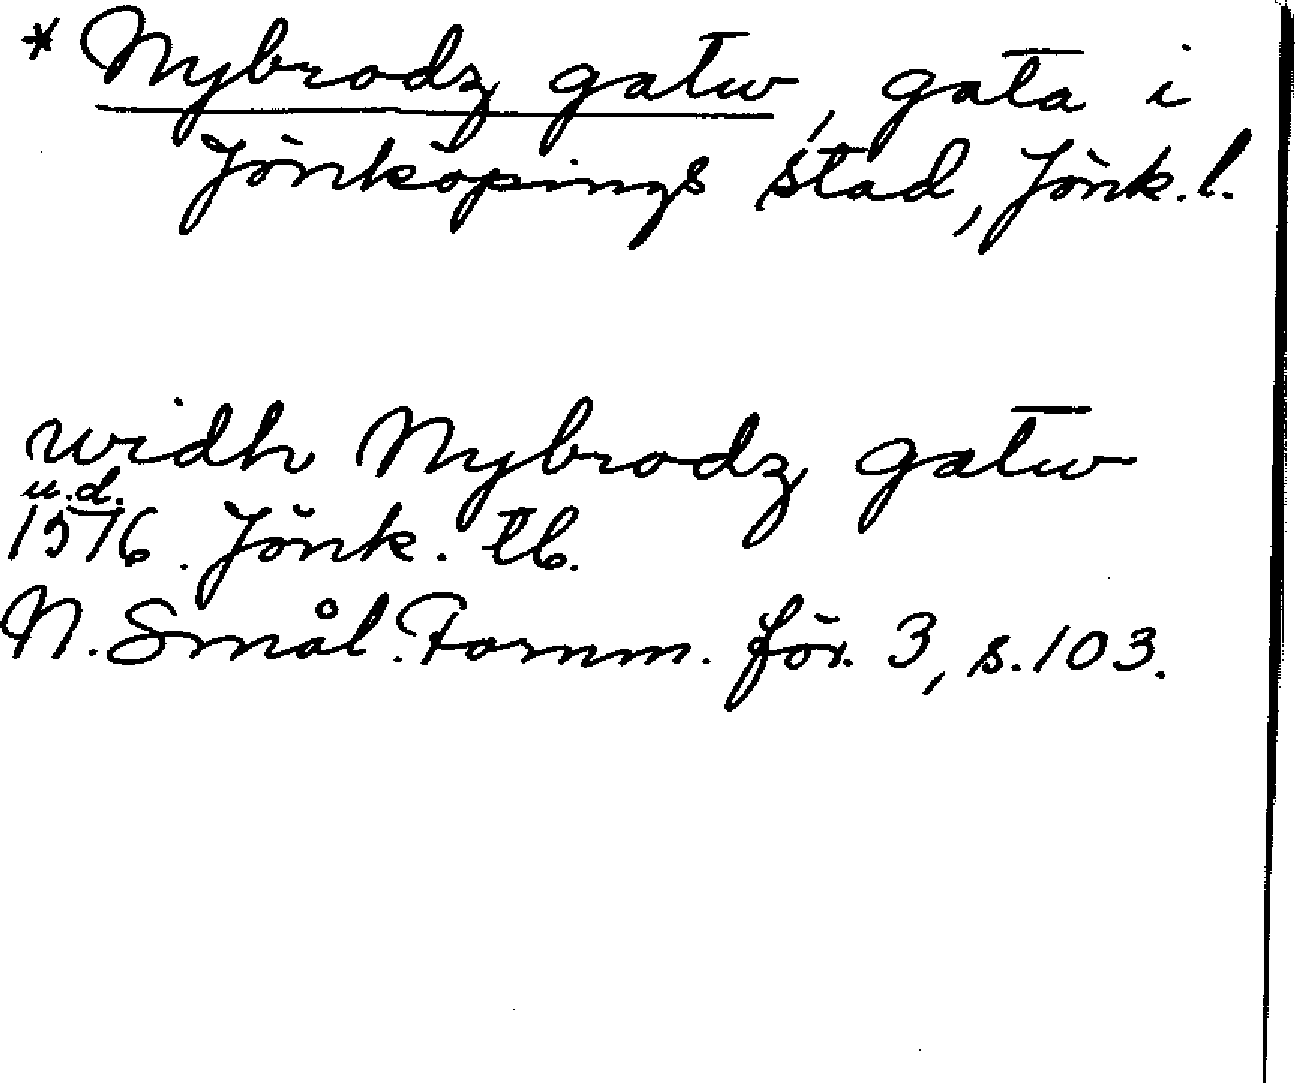 * Nybrodz gatw, gata i
Jönköpings stad, Jönk. l.
widh Nybrodz gatw
u.d.
1576. Jönk. tb.
N. Smål. Fornm. för. 3, s. 103.